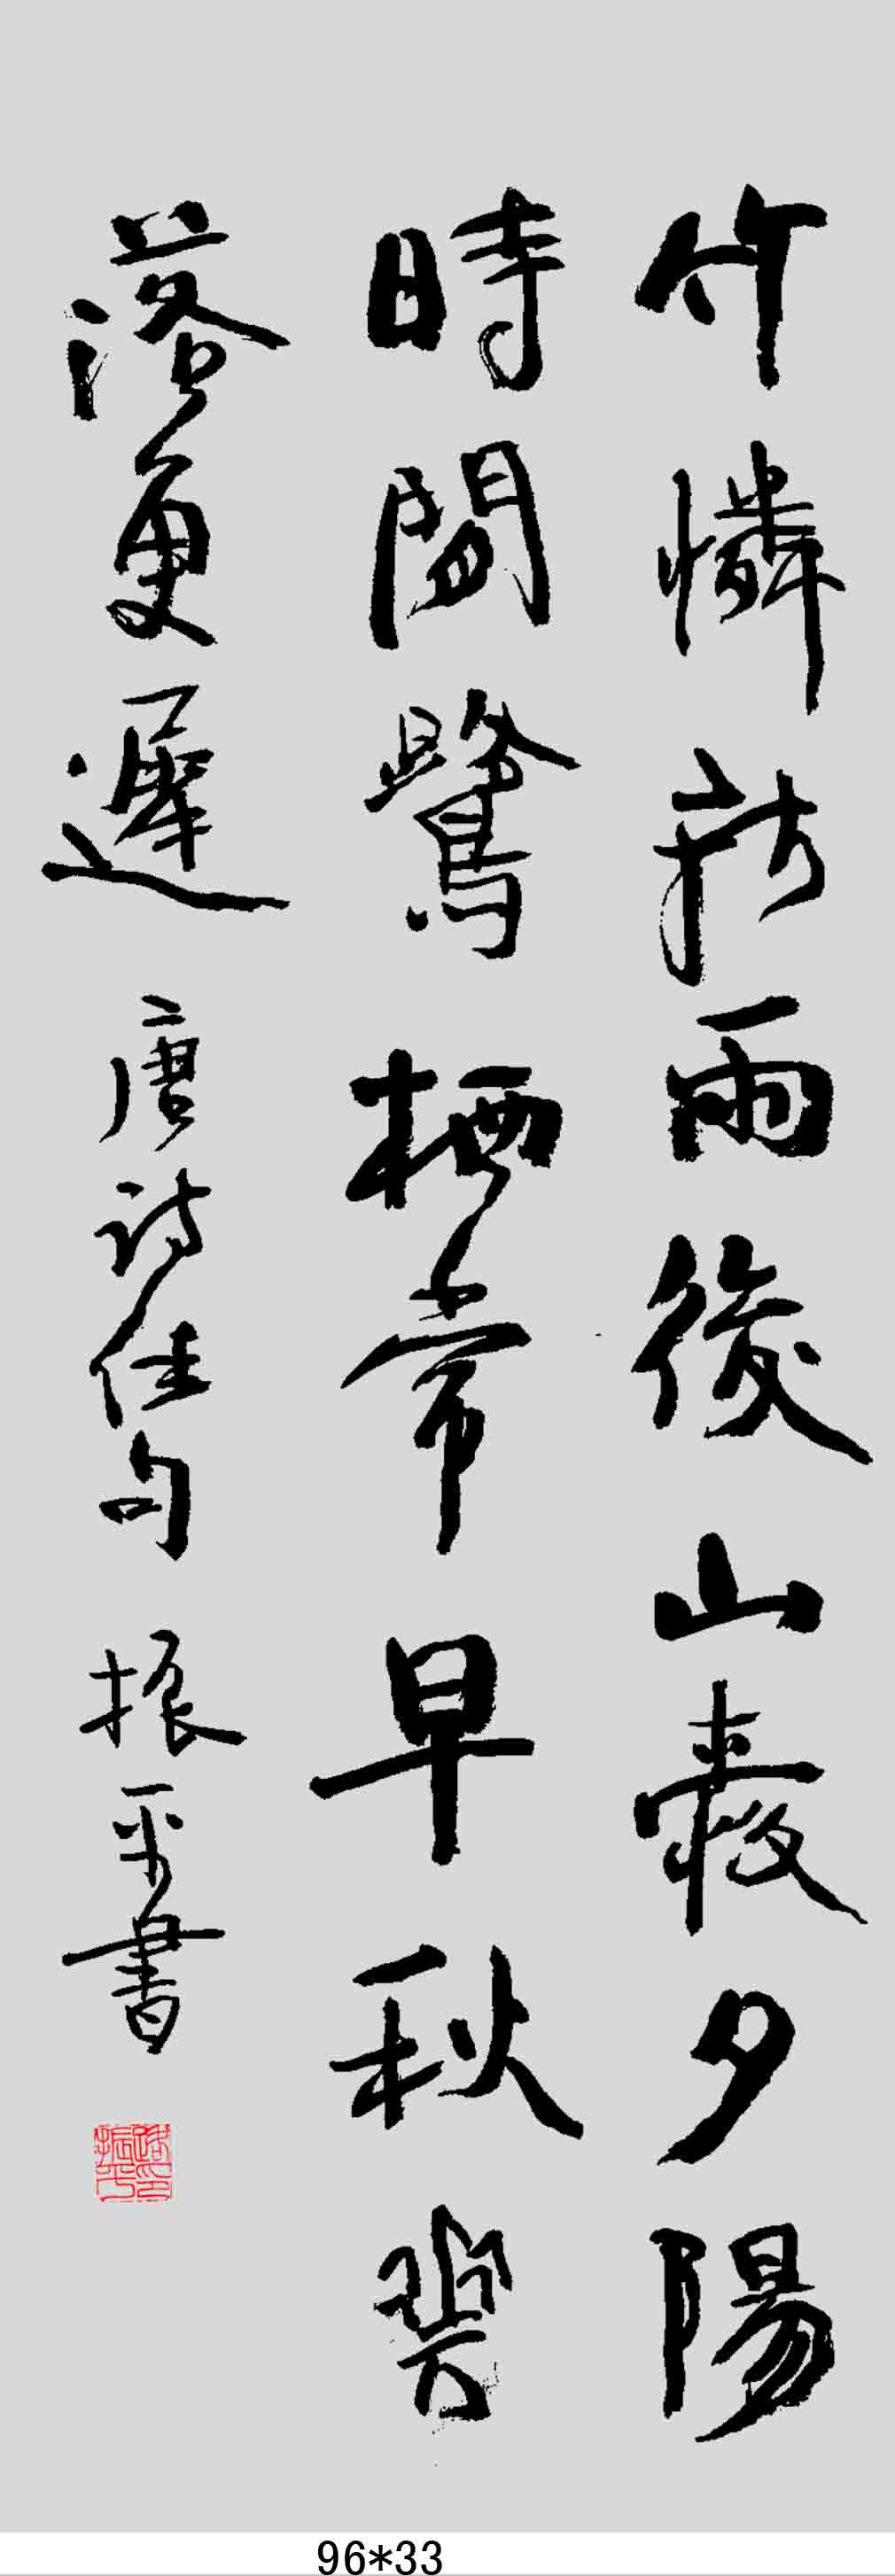 竹憐新雨後山愛夕陽
時閒鷺栖常早秋華
落更遲 唐詩佳句 振平書
96*33